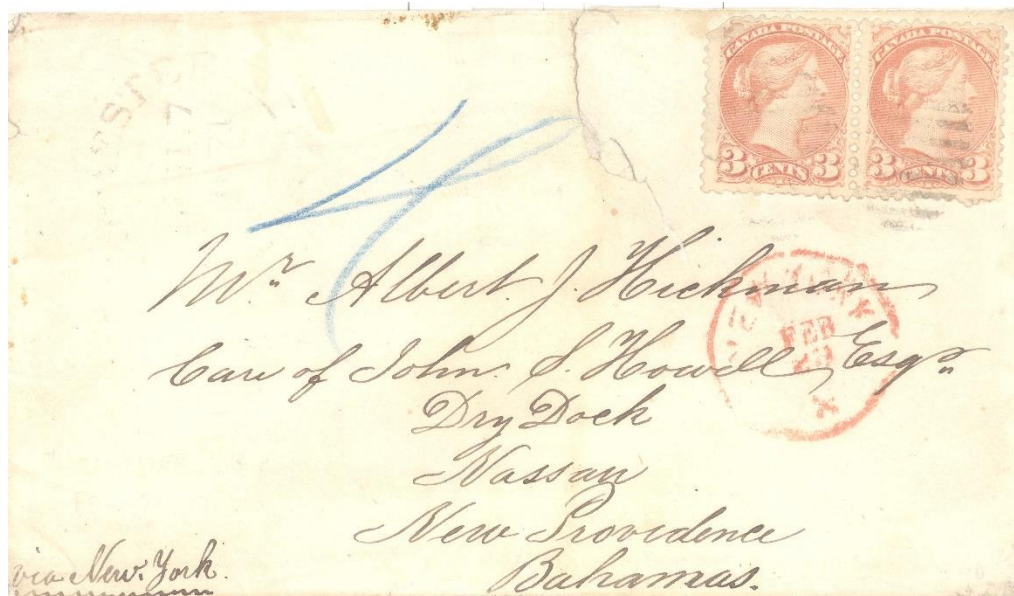 CANADA POSTAGE CANADA POSTAGE
3 CENTS 3 3 CENTS 3
Mr. Albert. J. Hickman
Care of John. S. Howell, Esqr.
Dry Dock
Nassau
New Providence
Bahamas.
NEW YORK
FEB
23
via New. York.